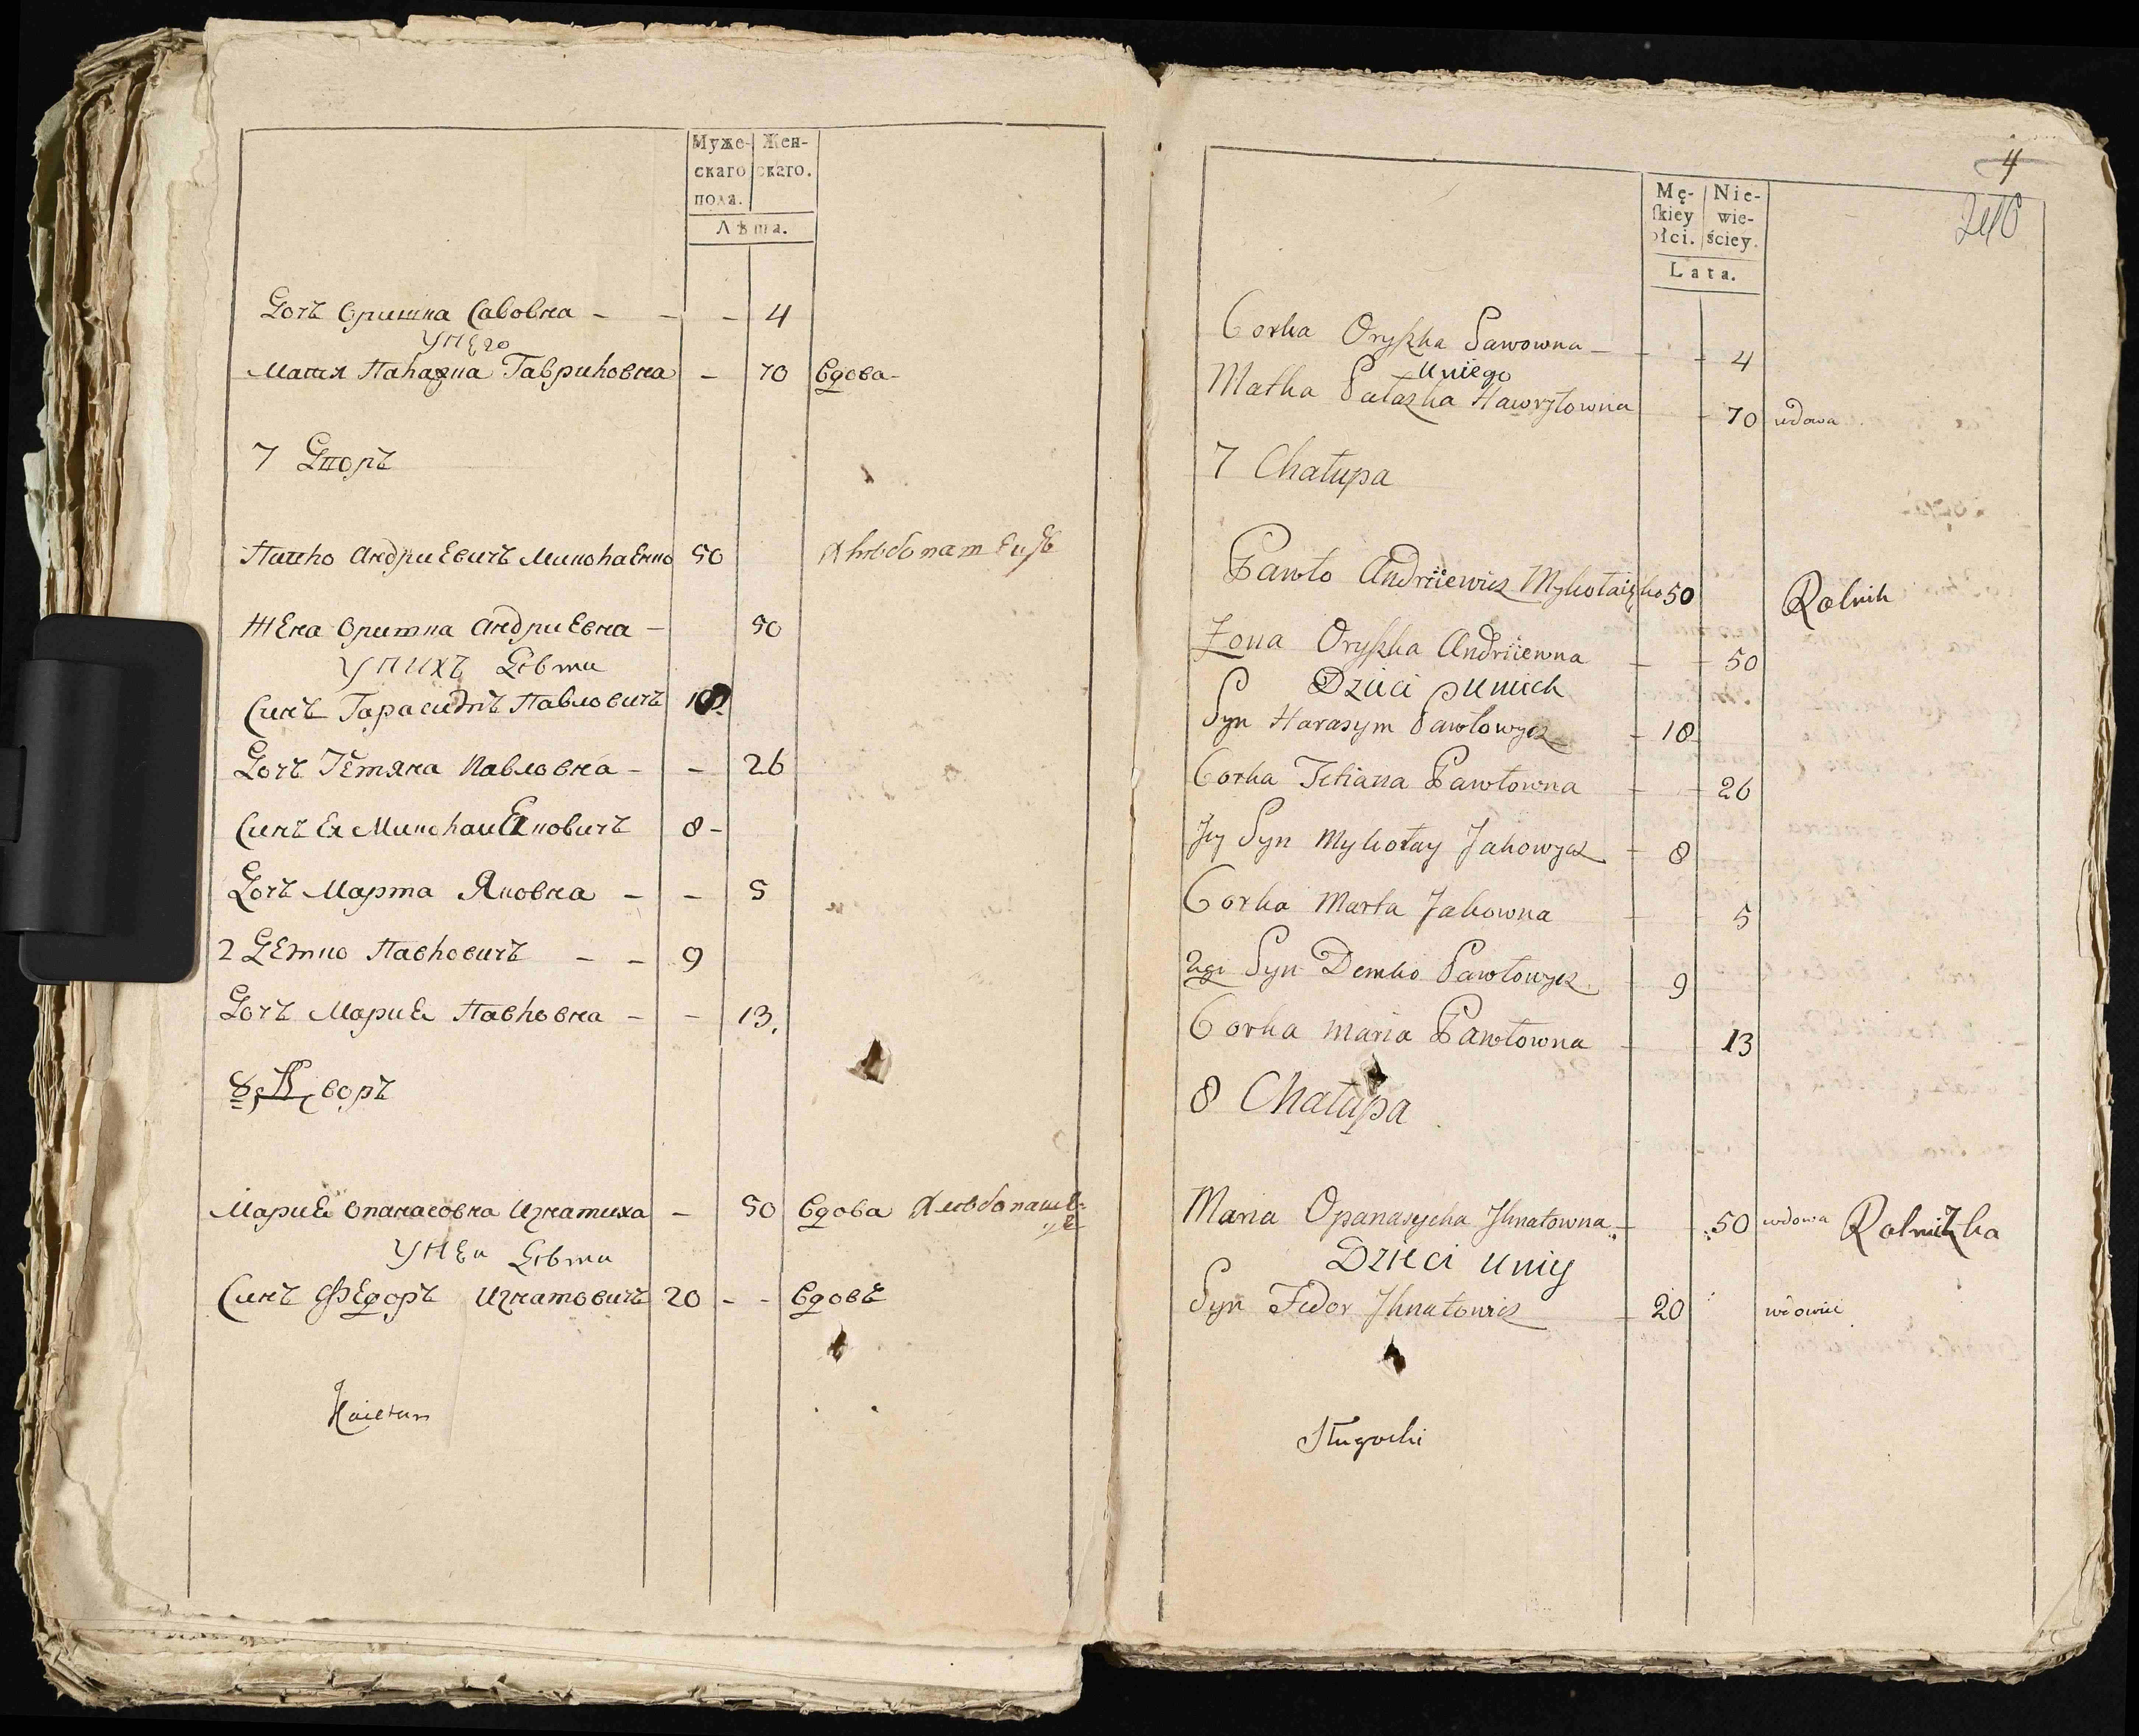 Муже- Жен-
скаго скаго.
пола.
Лѣта.
Дочъ Оришка Савовна - - - 4
У нѣго
Матка Палажка Гавриловна - 70 Вдова -
7 Дворъ
Павло Андриевичъ Миколаенко 50
Жена Оришка Андриевна - 50
У нихъ Дѣти
Синъ Гарасимъ Павловичъ 18
Дочъ Тетяна Павловна - - 26
Синъ Ея Миколай Яковичъ 8 -
Дочъ Марта Яковна - - 5
2 Демко Павловичъ - - 9
Дочъ Мария Павловна - - 13.
8 Дворъ
Мария Опанасовна Игнатиха - 50 Вдова
У неи Дѣти
Синъ Федоръ Игнатовичъ 20 - - Вдовѣ
4
240
Mę- Nie-
ſkiey wie-
płci. ściey.
Lata.
Corka Oryszka Sawowna - - - 4
u niego
Matka Pałazka Hawryłowna - 70 wdowa
7 Chałupa
Pawło Andriiewicz Mykołaiezko 50 Rolnik
Żona Oryszka Andriiewna - - 50
Dzieci u nich
Syn Harasym Pawłowycz - 18
Corka Tetiana Pawłowna - - 26
Jey Syn Mykołay Jakowycz - 8
Corka Marta Jakowna - - 5
2gi Syn Demko Pawłowycz - 9
Corka Maria Pawłowna - 13
8 Chałupa
Maria Opanasycha Jhnatowna - - 50 wdowa Rolniczka
Dzieci u niey
Syn Fedor Jhnatowicz - 20 wdowiec